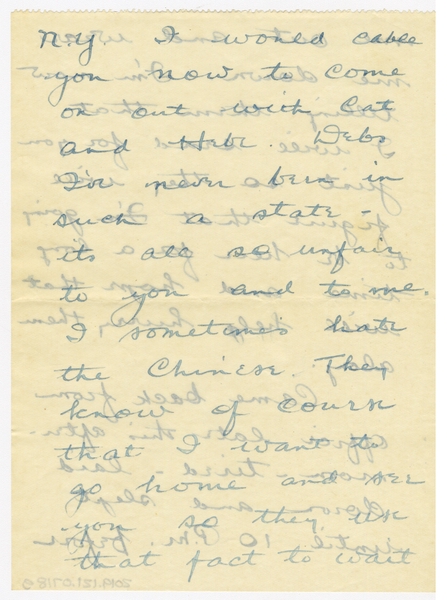 N.Y. I would cable
you now to come
on out with Cat
and Hebe. Debs
I've never been in
such a state -
its all so unfair
to you and to me.
I sometimes hate
the Chinese. They
know of course
that I want to
go home and see
you so they use
that fact to wait